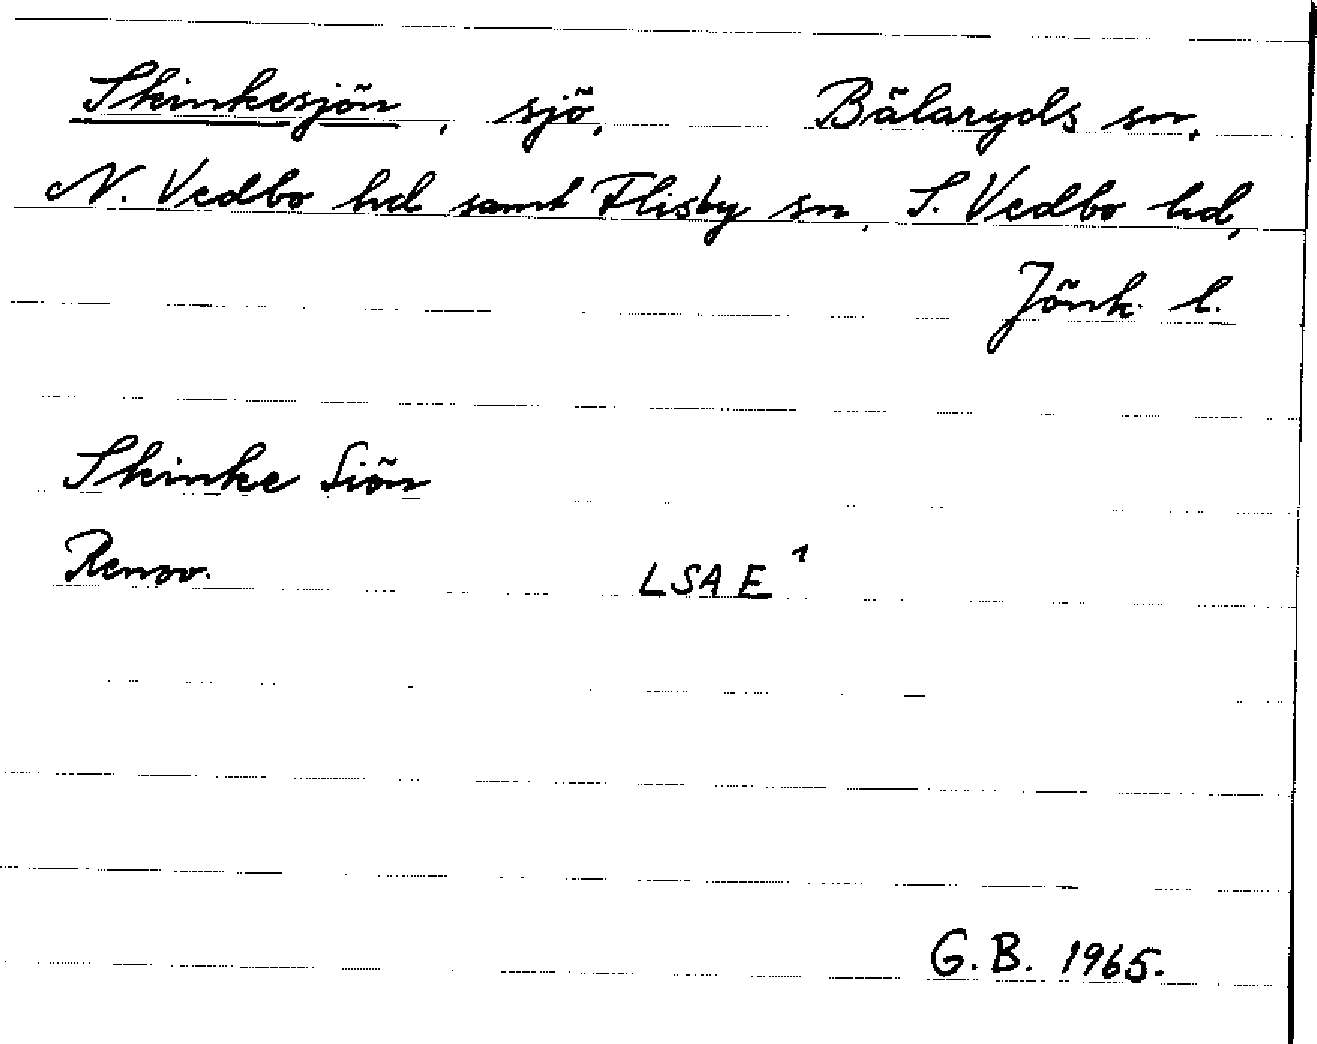 Skinkesjön, sjö, Bälaryds sn,
N. Vedbo hd samt Flisby sn, S. Vedbo hd,
Jönk. l.
Skinke Siön
Renov. LSA E¹
G.B. 1965.